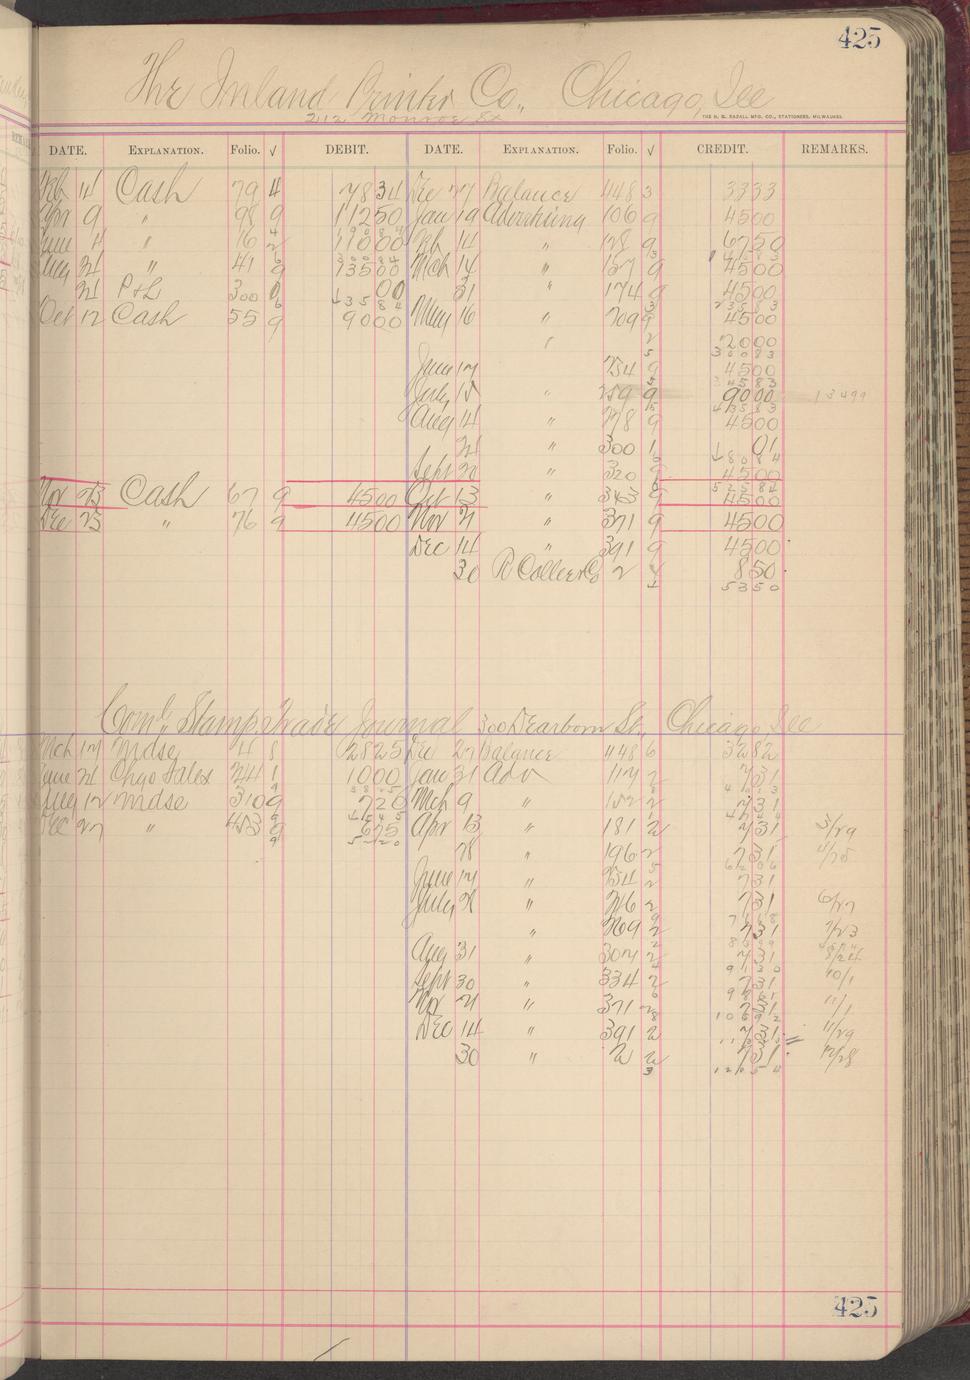 425
The Inland Printer Co., Chicago, Ill
212 Monroe St
THE H. G. RAZALL MFG. CO., STATIONERS, MILWAUKEE.
DATE. EXPLANATION. Folio. √ DEBIT. DATE. EXPLANATION. Folio. √ CREDIT. REMARKS.
Feb 14 Cash 79 4 78 34 Dec 27 Balance 448 3 33 33
Apr 9 " 98 9 112 50 Jan 19 Advertising 106 9 45 00
June 4 " 16 2 110 00 Feb 14 " 128 9 67 50
Aug 21 " 41 9 135 00 Mch 14 " 157 9 45 00
21 P & L 300 0 00 31 " 174 9 45 00
Oct 12 Cash 55 9 90 00 May 16 " 209 9 45 00
" 2 20 00
June 17 " 234 9 45 00
July 15 " 259 9 90 00 13499
Aug 14 " 278 9 45 00
21 " 300 1 01
Sept 20 " 320 9 45 00
Nov 23 Cash 67 9 45 00 Oct 13 " 343 9 45 00
Dec 23 " 76 9 45 00 Nov 21 " 371 9 45 00
Dec 14 " 391 9 45 00
30 R Collier Co 2 4 8 50
53 50
Coml. Stamp Trade Journal 300 Dearborn St., Chicago, Ill
Mch 17 Mdse 4 8 28 25 Dec 27 Balance " 48 6 32 82
June 21 Chgo Sales 241 1 10 00 Jan 31 Adv 117 2 7 31
Aug 12 Mdse 310 9 7 20 Mch 9 " 152 2 7 31
Dec 27 " 453 9 6 75 Apr 13 " 181 2 7 31 3/29
28 " 196 2 7 31 4/25
June 17 " 234 2 7 31
July 21 " 246 2 7 31 6/27
" 269 2 7 31 7/23
Aug 31 " 307 2 7 31 8/24
Sept 30 " 334 2 7 31 10/1
Nov 21 " 371 2 7 31 11/1
Dec 14 " 391 2 7 31 11/29
30 " 2 2 7 31 12/28
425